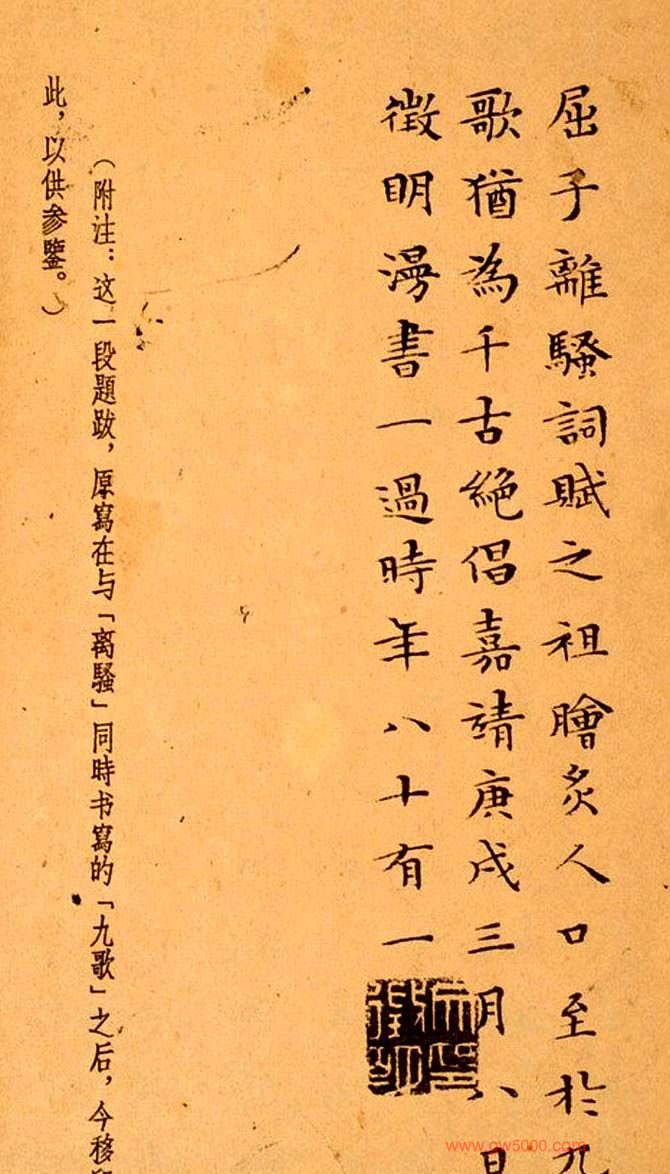 屈子離騷詞賦之祖膾炙人口至於九
歌猶為千古絕倡嘉靖庚戌三月八日
徵明漫書一過時年八十有一
（附注：这一段題跋，原寫在与「离騷」同時书寫的「九歌」之后，今移
此，以供参鑒。）
www.gw5000.com